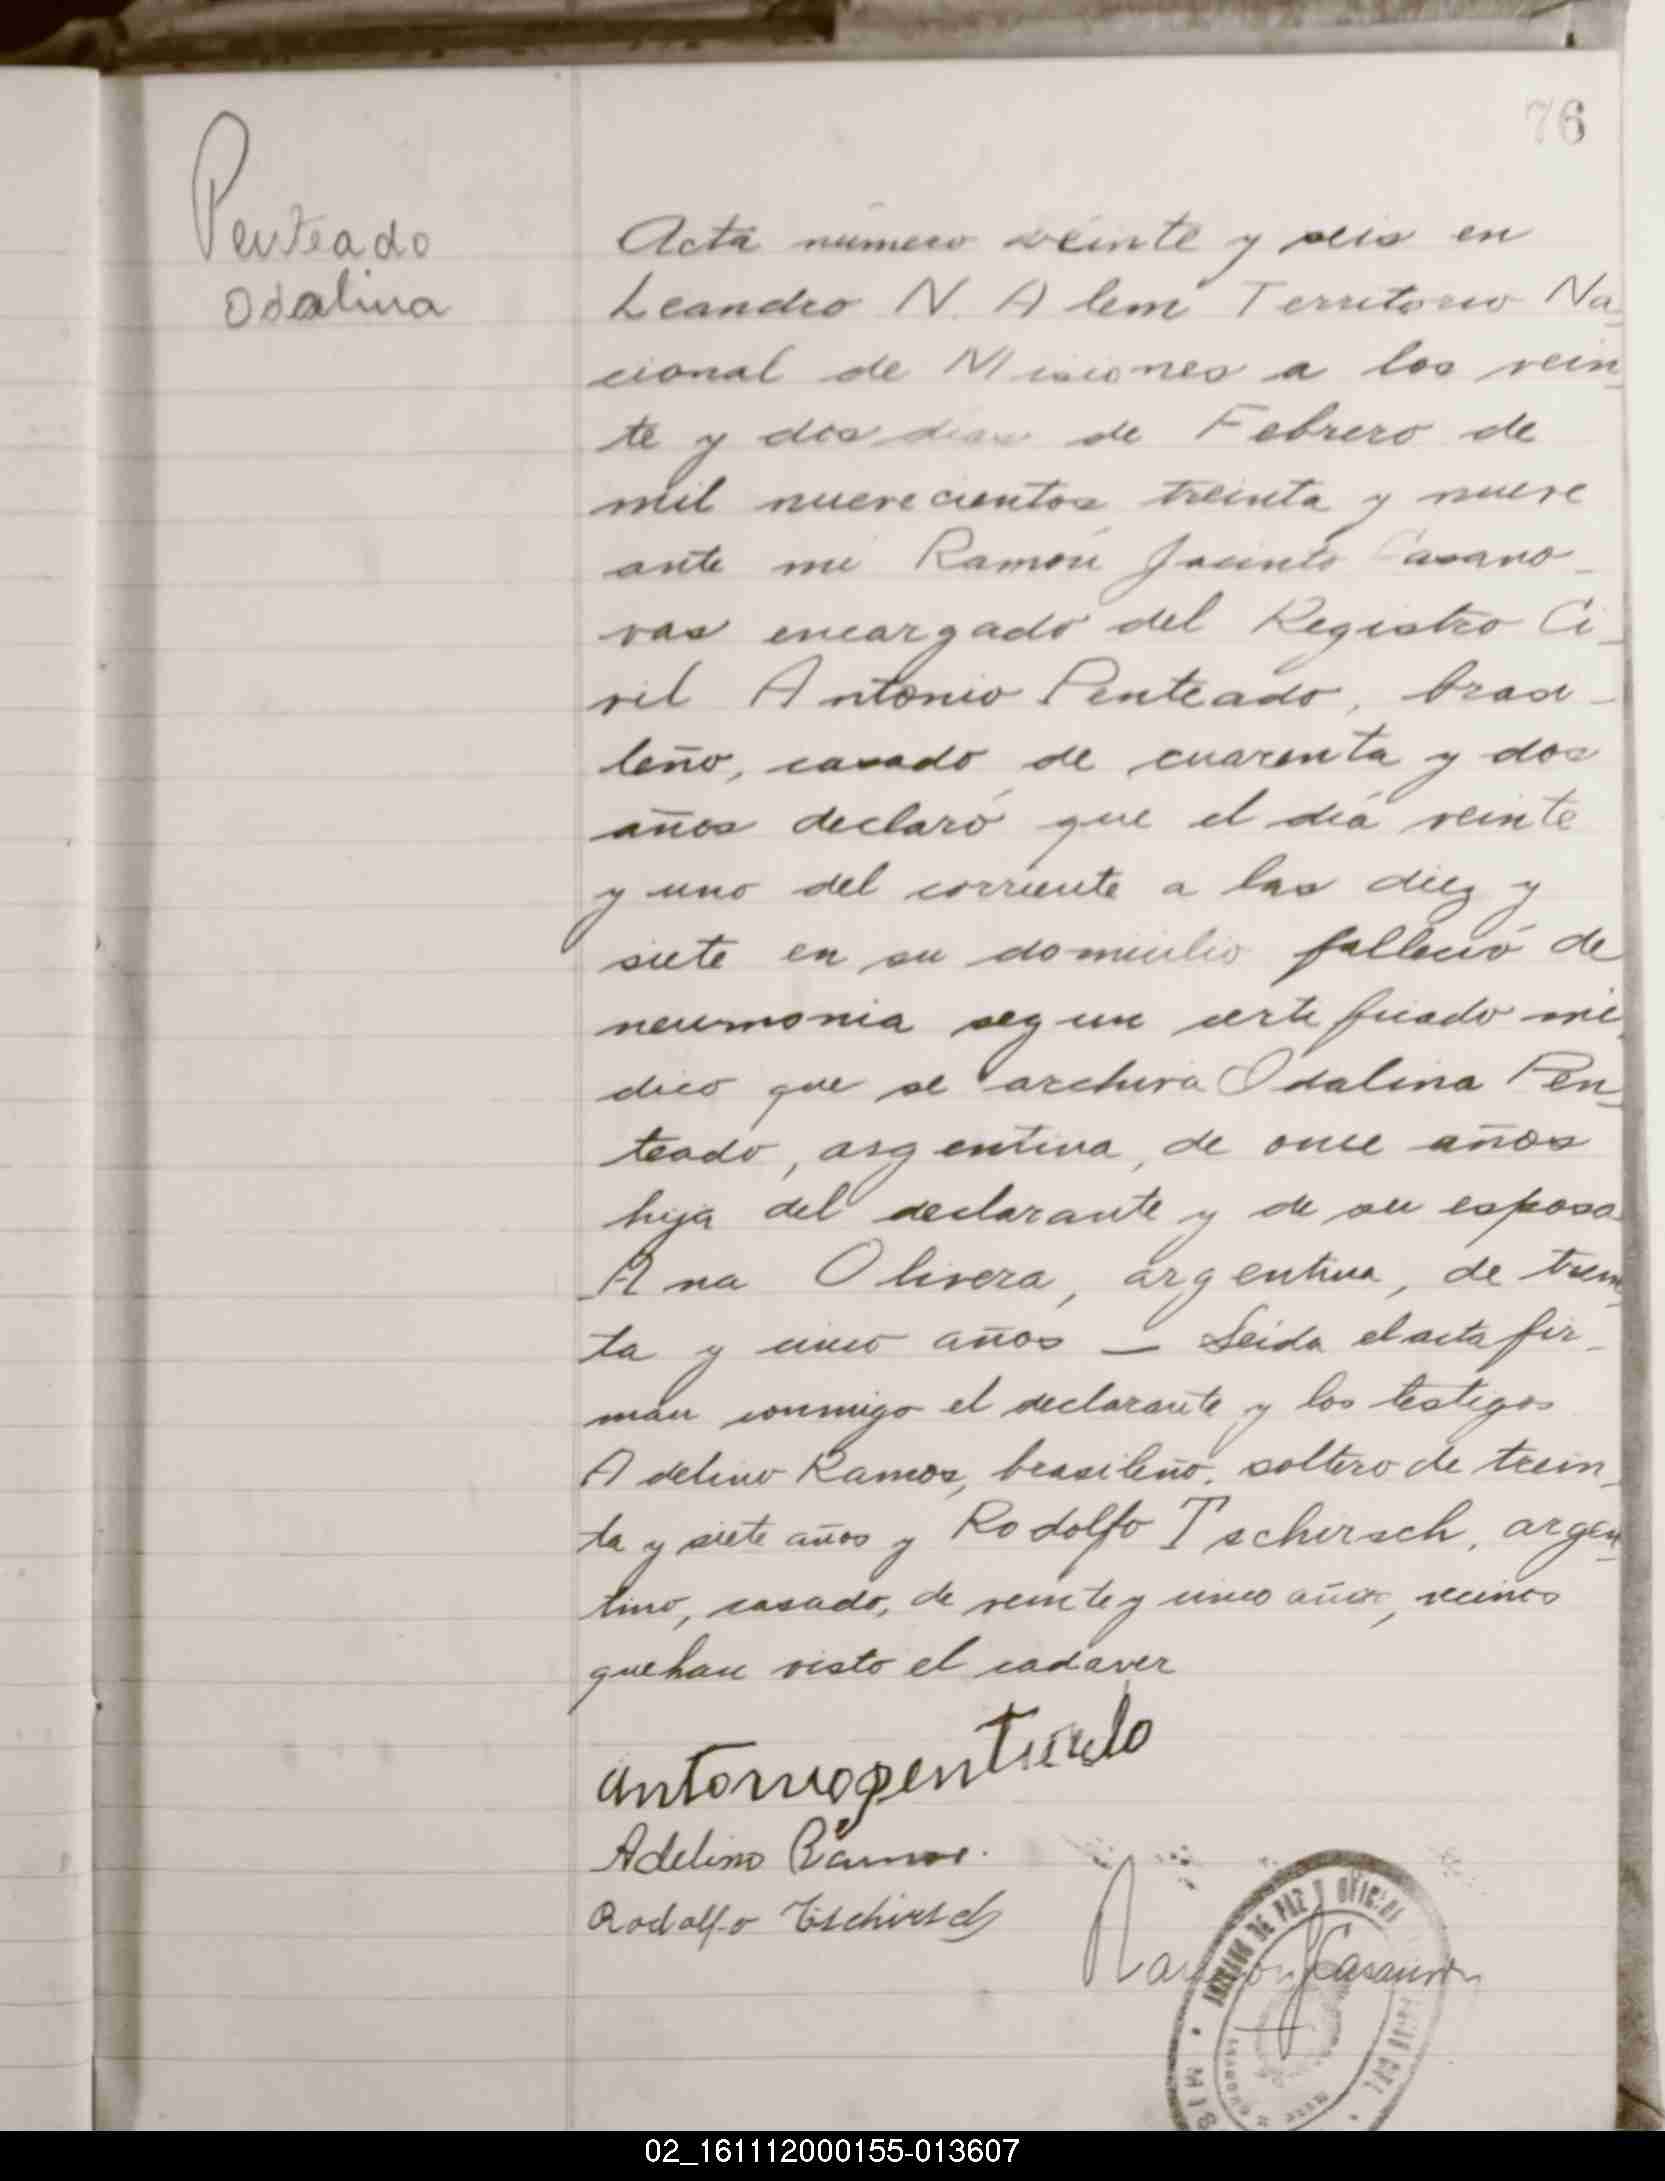 76
Penteado
Odalina
Acta número veinte y seis en
Leandro N. Alem Territorio Na_
cional de Misiones a los vein_
te y dos dias de Febrero de
mil nuevecientos treinta y nueve
ante mi Ramón Jacinto Casano_
vas encargado del Registro Ci_
vil Antonio Penteado, brasi_
leño, casado de cuarenta y dos
años declaró que el día veinte
y uno del corriente a las diez y
siete en su domicilio falleció de
neumonia segun certificado mé_
dico que se archiva Odalina Pen_
teado, argentina, de once años
hija del declarante y de su esposa
Ana Olivera, argentina, de trein_
ta y cinco años — Leida el acta fir_
man conmigo el declarante y los testigos
Adelino Ramos, brasileño, soltero de trein_
ta y siete años y Rodolfo Tschirsch, argen_
tino, casado, de veinte y cinco años, vecinos
que han visto el cadaver
Adelino Ramos.
Rodolfo Tschirsch
Ramón J Casanovas
JUZGADO DE PAZ Y OFICINA
02_161112000155-013607